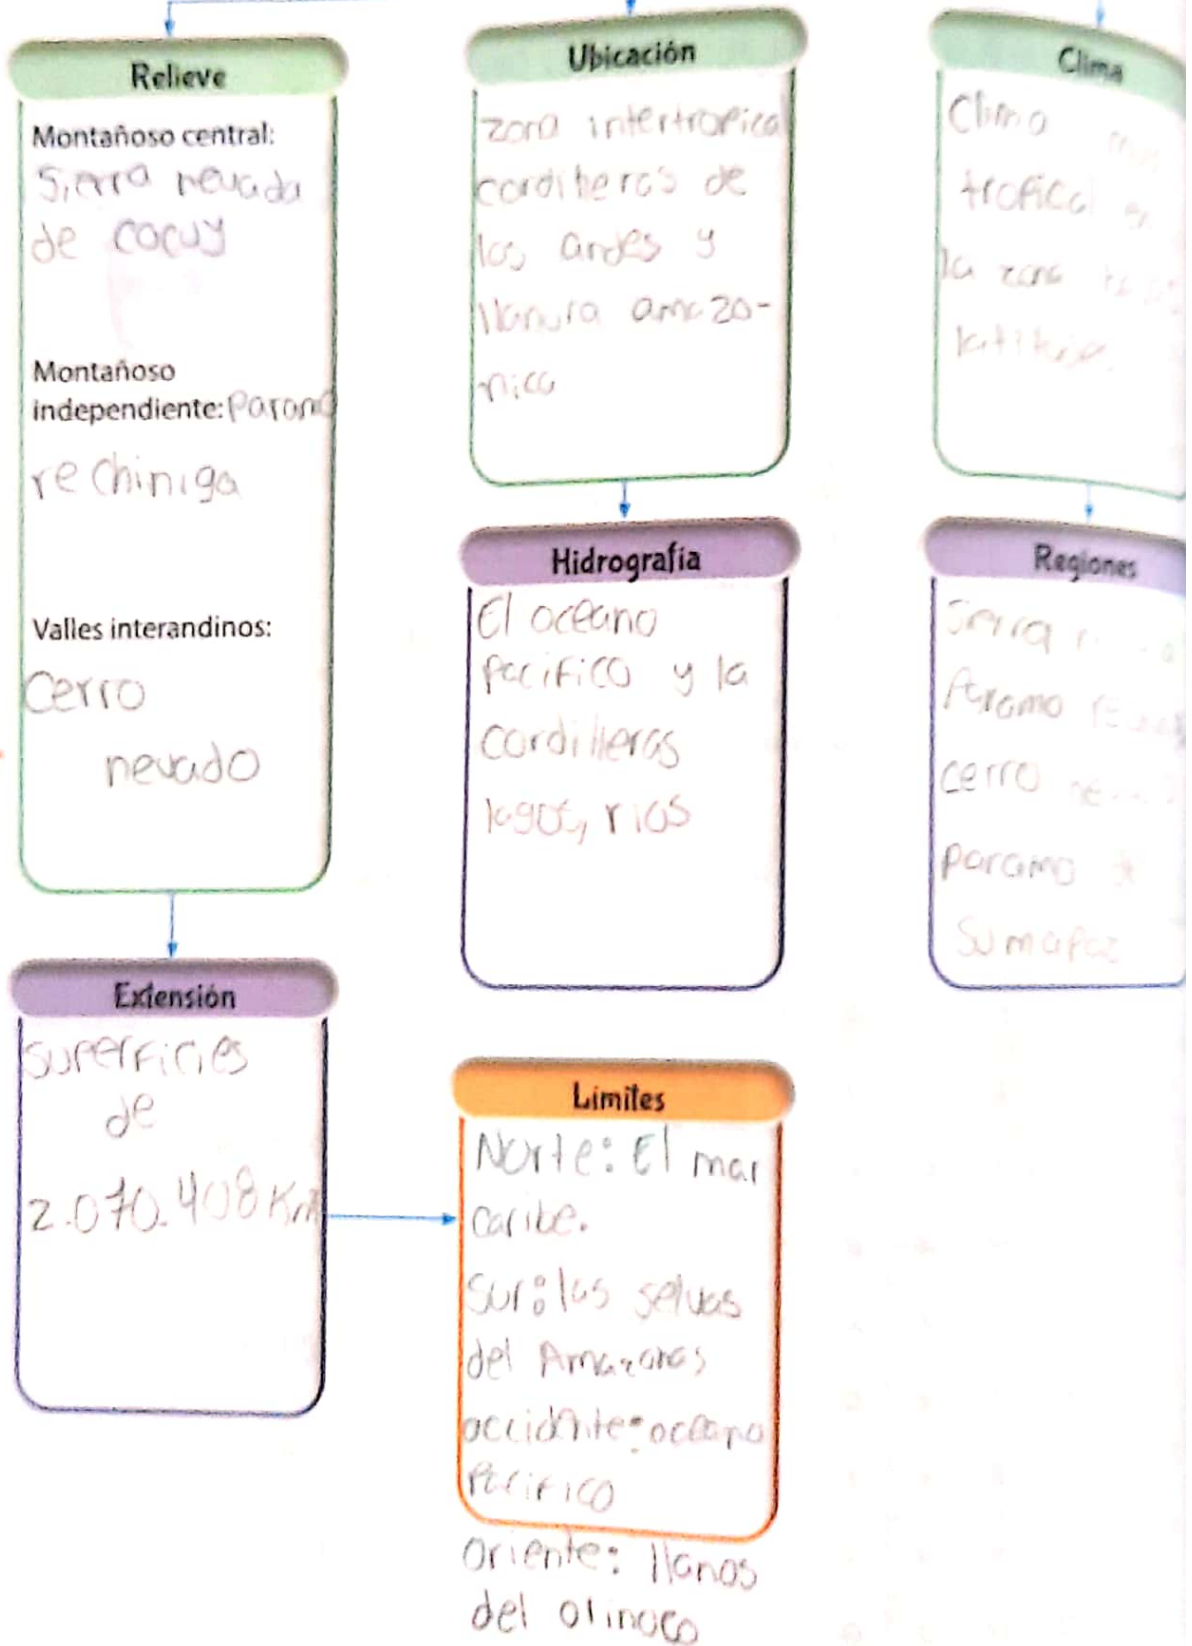 Relieve
Montañoso central:
Sierra nevada
de cocuy
Montañoso
independiente: Paramo
rechiniga
Valles interandinos:
Cerro
nevado
Extensión
superficies
de
2.070.408 Km
Ubicación
zona intertropical
cordilleras de
los andes y
llanura amazo-
nica
Hidrografía
El oceano
Pacifico y la
cordilleras
lagos, rios
Límites
Norte: El mar
caribe.
Sur: las selvas
del Amazonas
occidente: oceano
Pacifico
oriente: llanos
del olinoco
Clima
Clima
tropical
la zona
Regiones
Sierra
Paramo
cerro
paramo
Sumapaz